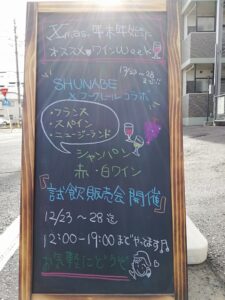 Xmas. 年末年始に
オススメ ワインWeek!!
12/23〜28
SHUNABE
×フーグルールコラボ
・フランス
・スペイン
・ニュージーランド
シャンパン
赤・白ワイン
『試飲販売会 開催』
12/23〜28迄
12:00〜19:00までやってます!
お気軽にどうぞ